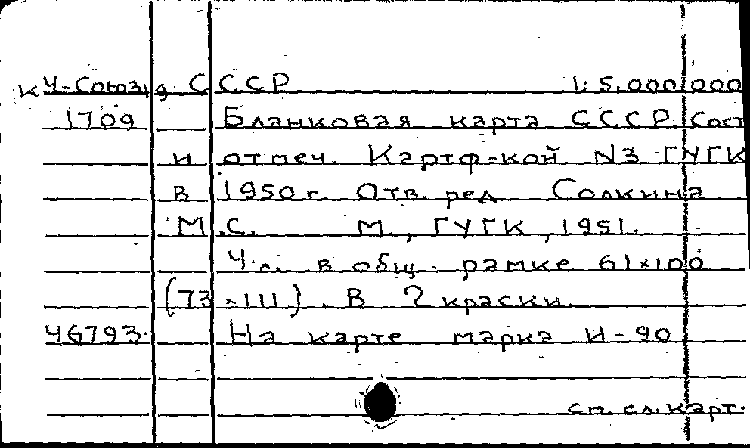 К Ч-Союз, 9 СССР 1:5.000.000
1709 Бланковая карта СССР. Сост.
и отпеч. Картф-кой N3 ГУГК
в 1950г. Отв. ред. Солкина
М.С. М., ГУГК, 1951.
4 л. в общ. рамке 61×100
(73×111). В 2 краски.
46793. На карте марка И-90
см. сл. карт.